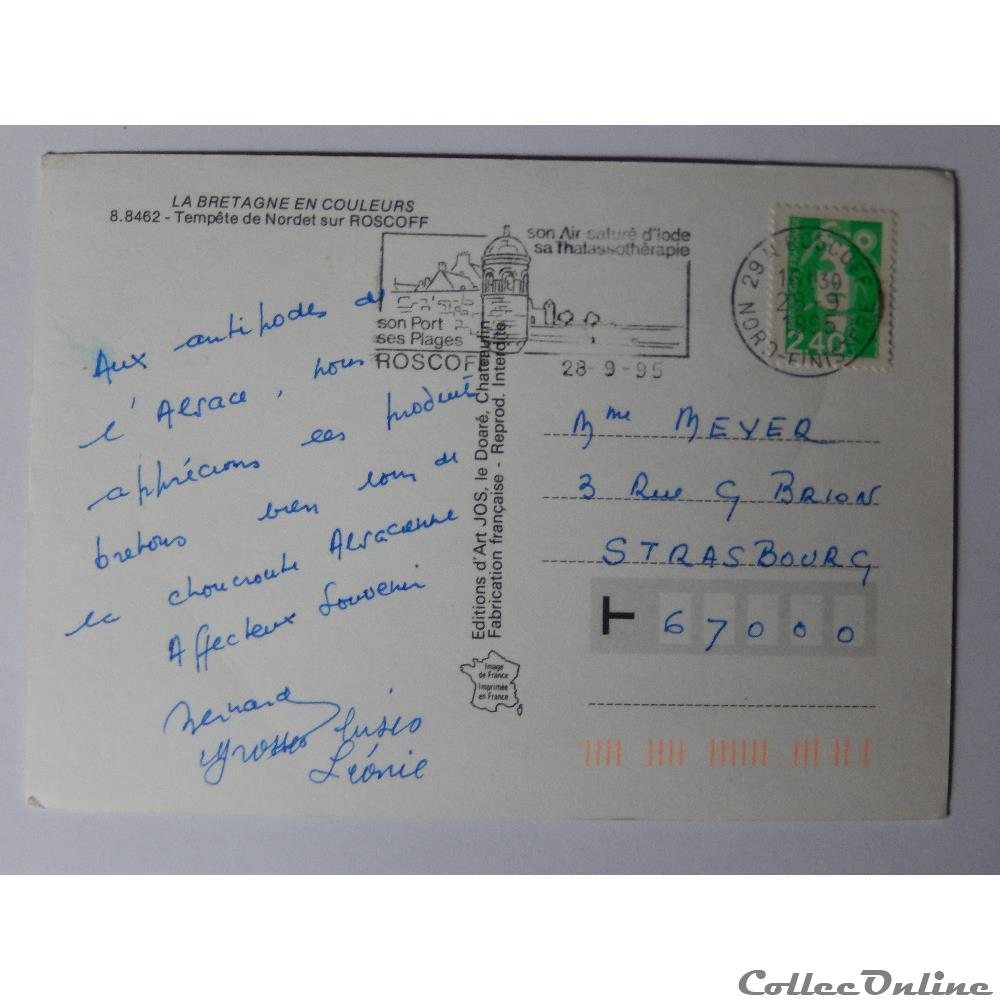 LA BRETAGNE EN COULEURS
8.8462 - Tempête de Nordet sur ROSCOFF
son Air saturé d'Iode
sa Thalassothérapie
son Port
ses Plages
ROSCOFF
28-9-95
29 N ROSCOFF
16H30
28-9
1995
NORD-FINISTERE
2,40
Aux antipodes de
l'Alsace, nous
apprécions les produits
bretons bien loin de
la choucroute Alsacienne
Affectueux Souvenir
Bernard
Léonie
Editions d'Art JOS, le Doaré, Chateaulin
Fabrication française - Reprod. Interdite
Image
de France
Imprimée
en France
Mme MEYER
3 Rue G BRION
STRASBOURG
T 67000
CollecOnline